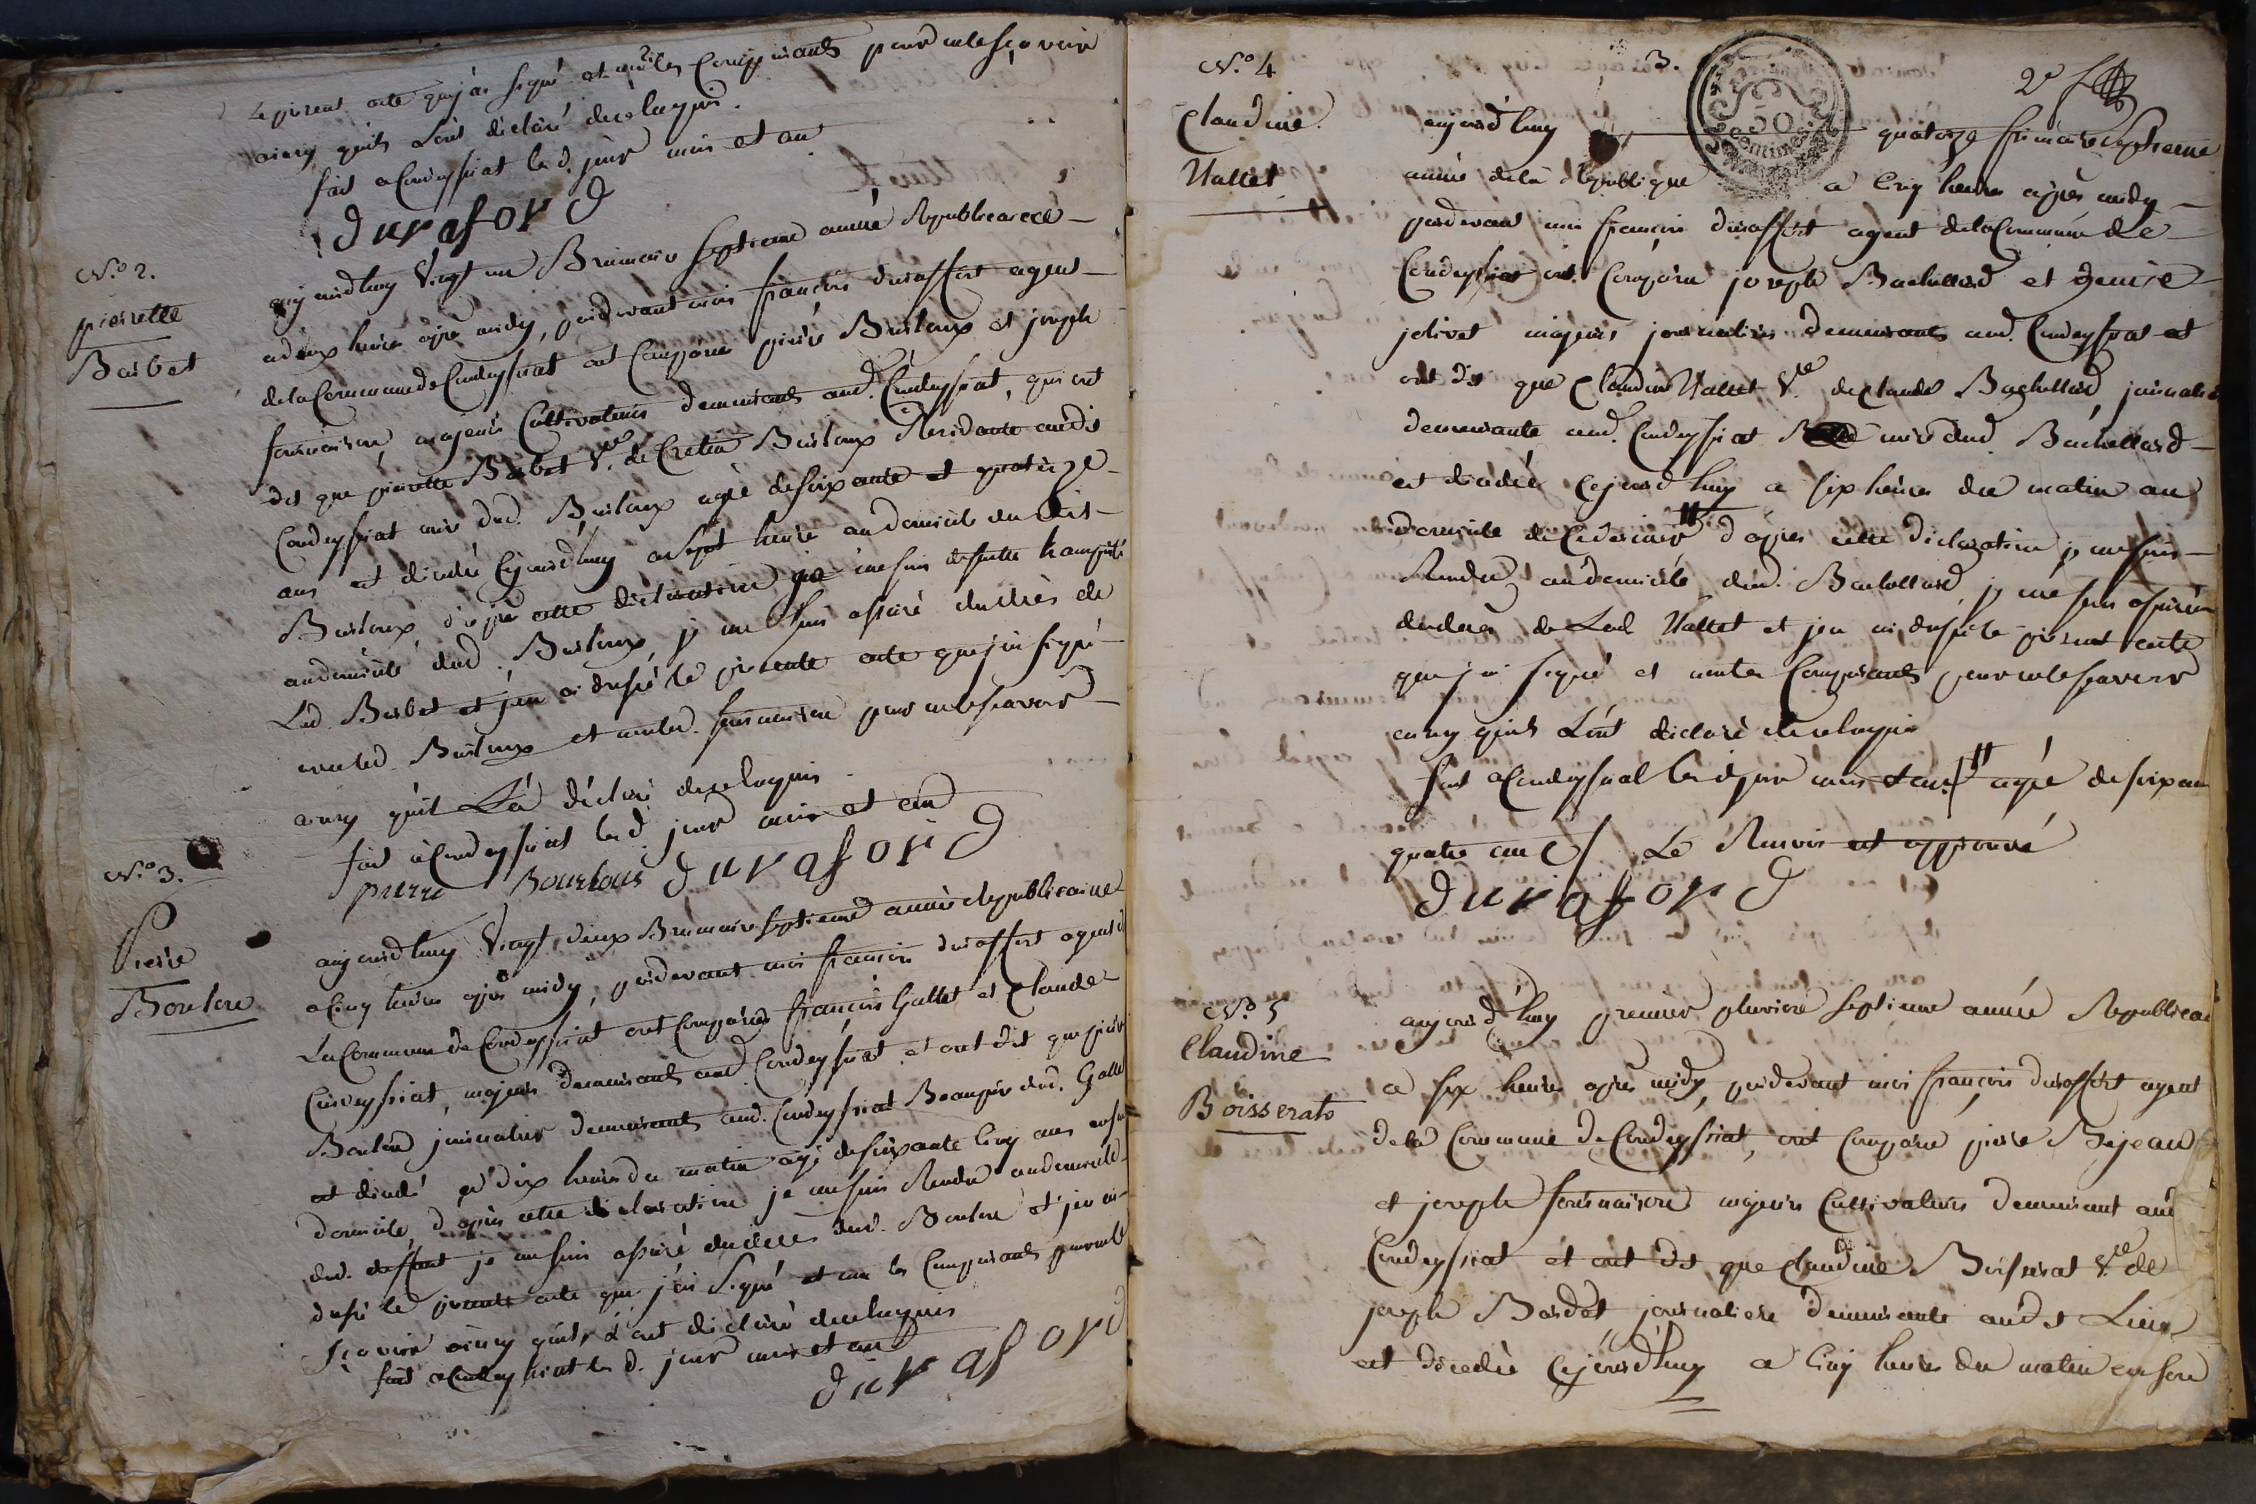 Le présent acte que j'ai signé et non les Comparants pour ne le sçavoir
ainsy qu'ils L'ont déclaré de ce Enquis.
fait a Condeyssiat les d. jour mois et an
duraford
N.º 2.
pierrette
Barbet
aujourd'huy Vingt un Brumaire Septieme année Republicaine
a deux heures après midy, pardevant moi françois duraffort agent
de la Commune de Condeyssiat ont Comparu pierre Burloux et joseph
fournaison, majeurs Cultivateurs demeurants aud. Condeyssiat, qui ont
dit que pierrette Barbet V.ve de Burloux Residante audit
Condeyssiat mere dud. Burloux agée de soixante et quatorze
ans est décédée Cejourd'huy a sept heures au domicile dudit
Burloux, d'après cette déclaration je me suis de suitte transporté
au domicile dud. Burloux, je me suis assuré du décès de
Lad. Barbet et j'en ai dressé le présente acte que j'ai signé
avec led. Burloux et non led. fournaison pour ne le sçavoir
ainsy qu'il L'a déclaré de ce Enquis.
fait a Condeyssiat les d. jour mois et an
pierre Bourlous duraford
N.º 3.
Pierre
Bonlere
aujourd'huy Vingt deux Brumaire septieme année Republicaine
a Cinq heures après midy, pardevant moi françois duraffort agent d
La Commune de Condeyssiat ont Comparu françois Gallet et Claude
Condeyssiat, majeurs demeurants aud. Condeyssiat et ont dit que pierre
Bonlere journalier demeurant aud. Condeyssiat Beaupère dud. Gallet
est décédé a dix heures du matin agé de soixante Cinq ans en son
domicile, d'après cette déclaration je me suis Rendu au domicile
dud. deffunt je me suis assuré du décès dud. Bonlere et j'en ai
dressé le présente acte que j'ai signé et non les Comparants pour ne le
sçavoir ainsy qu'ils L'ont déclaré de ce Enquis
fait a Condeyssiat les d. jour mois et an
duraford
3.
50
Centimes
2e
N.º 4
Claudine
Nallet
aujourd'huy quatorze frimaire septieme
année de la Republique a Cinq heures après midy
pardevant moi françois duraffort agent de la Commune de
Condeyssiat ont Comparu joseph Bachellard et denise
jolivet majeurs journaliers demeurants aud. Condeyssiat et
ont dit que Claudine Nallet V.ve de Claude Bachellard, journaliere
demeurante aud. Condeyssiat mere dud. Bachellard
est décédée Cejourd'huy a six heures du matin au
domicile de Ce dernier # d'après cette déclaration je me suis
Rendu au domicile dud. Bachellard, je me suis assuré
du décès de Lad. Nallet et j'en ai dressé le présent acte
que j'ai signé et non les Comparants pour ne le sçavoir
ainsy qu'ils L'ont déclaré de ce Enquis
fait a Condeyssiat les d. jour mois et an # agée de soixante
quatre ans / Le Renvoi est approuvé
duraford
N.º 5
Claudine
Boisserato
aujourd'huy premier pluviose septieme année Republicaine
a six heures après midy, pardevant moi françois duraffort agent
de la Commune de Condeyssiat, ont Comparu pierre Bejean
et joseph fournaison majeurs Cultivateurs demeurant aud
Condeyssiat et ont dit que Claudine Boisserat V.ve de
joseph Bardet journaliere demeurante audit Lieu
est décédée Cejourd'huy a Cinq heures du matin en son